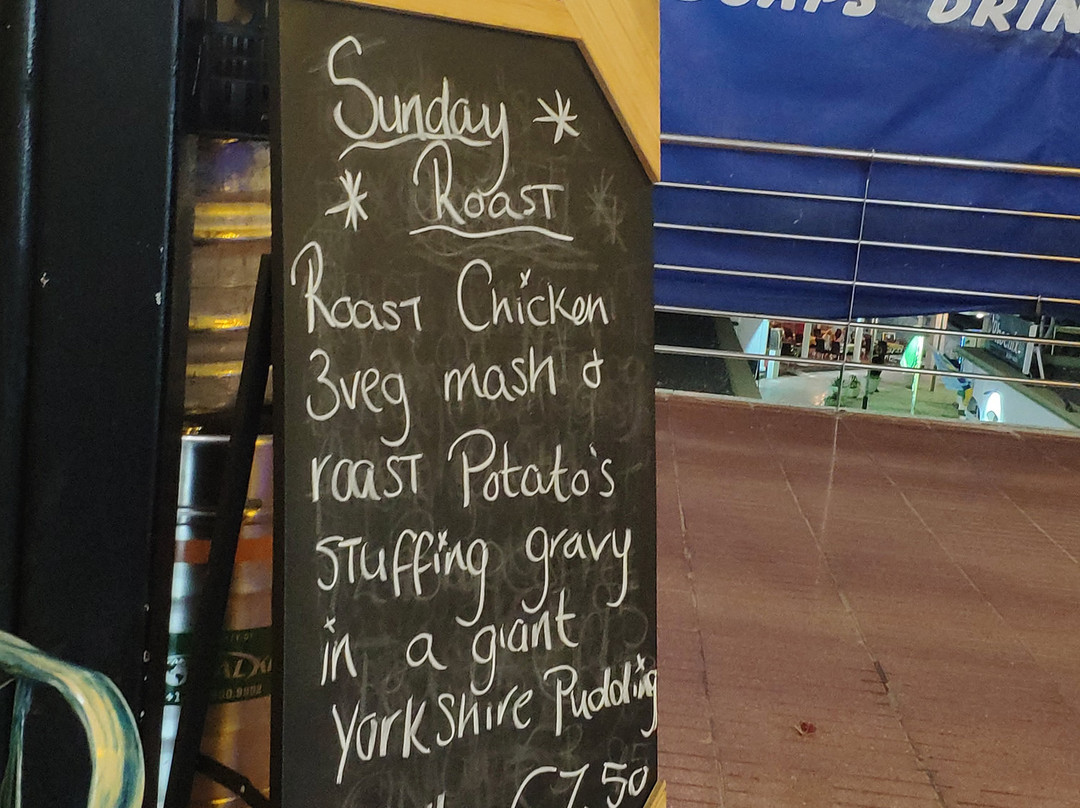 Sunday
Roast
Roast Chicken
3veg mash &
roast Potato's
stuffing gravy
in a giant
Yorkshire Pudding
7.50
DRIN